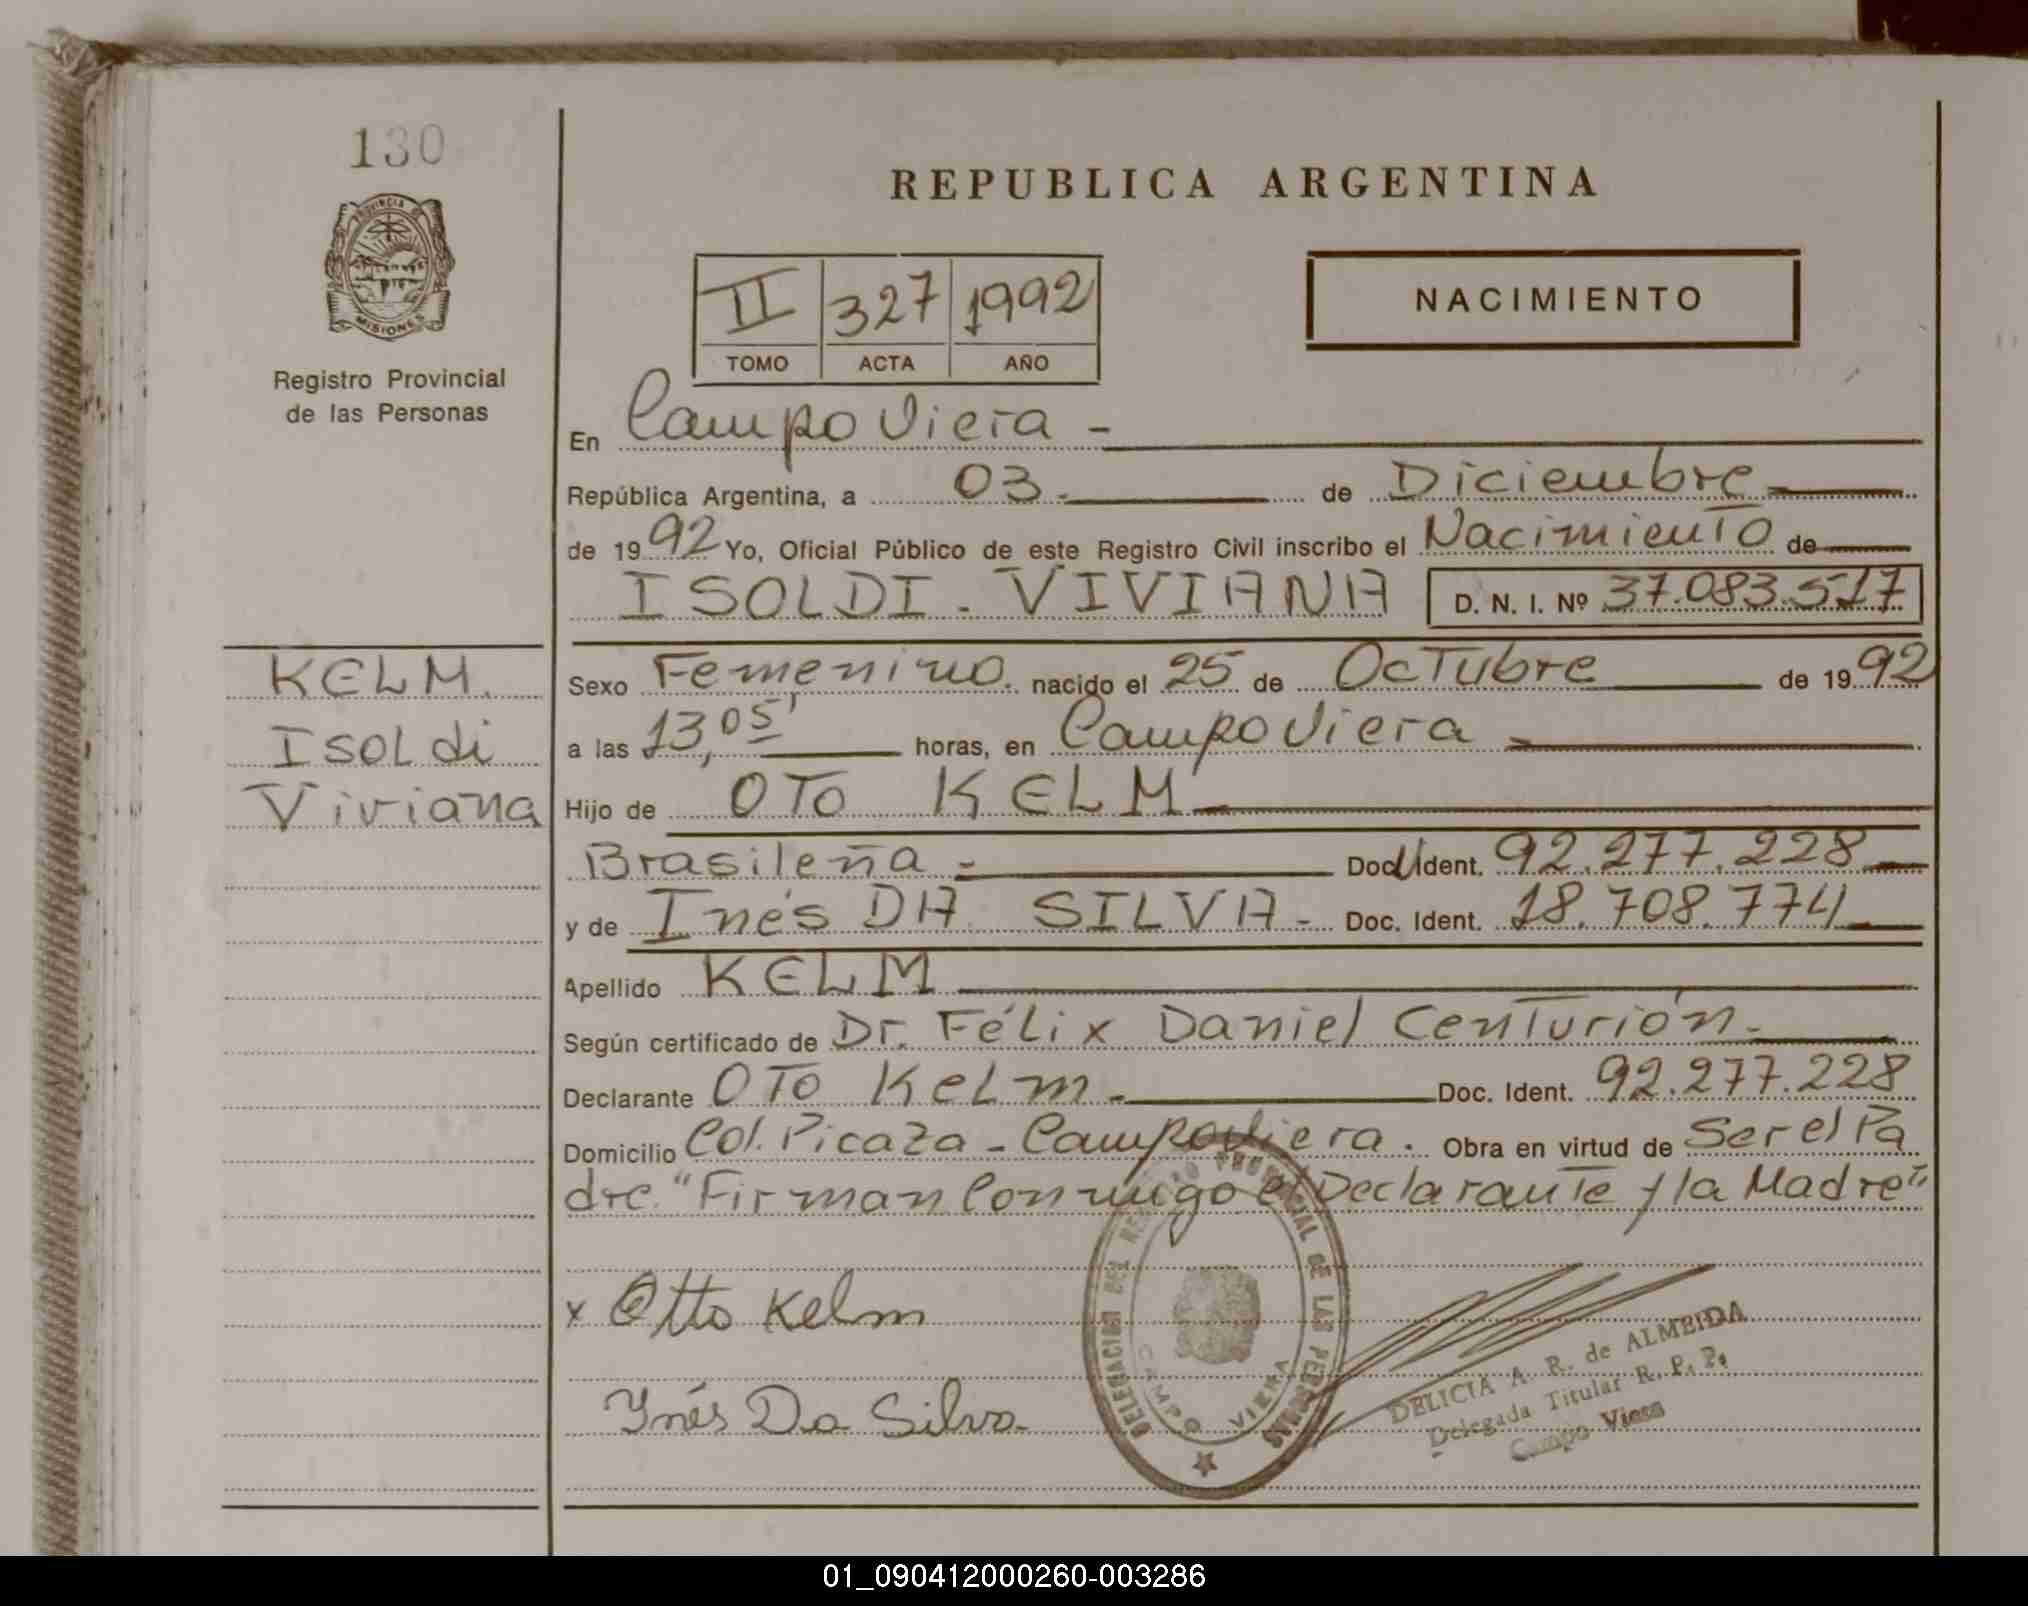 130
PROVINCIA DE
MISIONES
Registro Provincial
de las Personas
REPUBLICA ARGENTINA
II 327 1992
TOMO ACTA AÑO
NACIMIENTO
En Campo Viera -
República Argentina, a 03.- de Diciembre
de 1992 Yo, Oficial Público de este Registro Civil inscribo el Nacimiento de
ISOLDI - VIVIANA D. N. I. Nº 37.083.517
KELM.
Isoldi
Viviana
Sexo Femenino. nacido el 25 de Octubre de 1992
a las 13,05' horas, en Campo Viera -
Hijo de OTO KELM -
Brasileña - Doc. Ident. 92.277.228
y de Inés DA SILVA - Doc. Ident. 18.708.774
Apellido KELM
Según certificado de Dr. Félix Daniel Centurión.
Declarante OTO KELM. Doc. Ident. 92.277.228
Domicilio Col. Picaza - Campo Viera. Obra en virtud de Ser el Pa
dre. "Firman Conmigo el Declarante y la Madre"
x Otto Kelm
Inés Da Silva
DELEGACION DEL REGISTRO PROVINCIAL DE LAS PERSONAS
CAMPO VIERA
DELICIA A. R. de ALMEIDA
Delegada Titular R. P. P.
Campo Viera
01_090412000260-003286